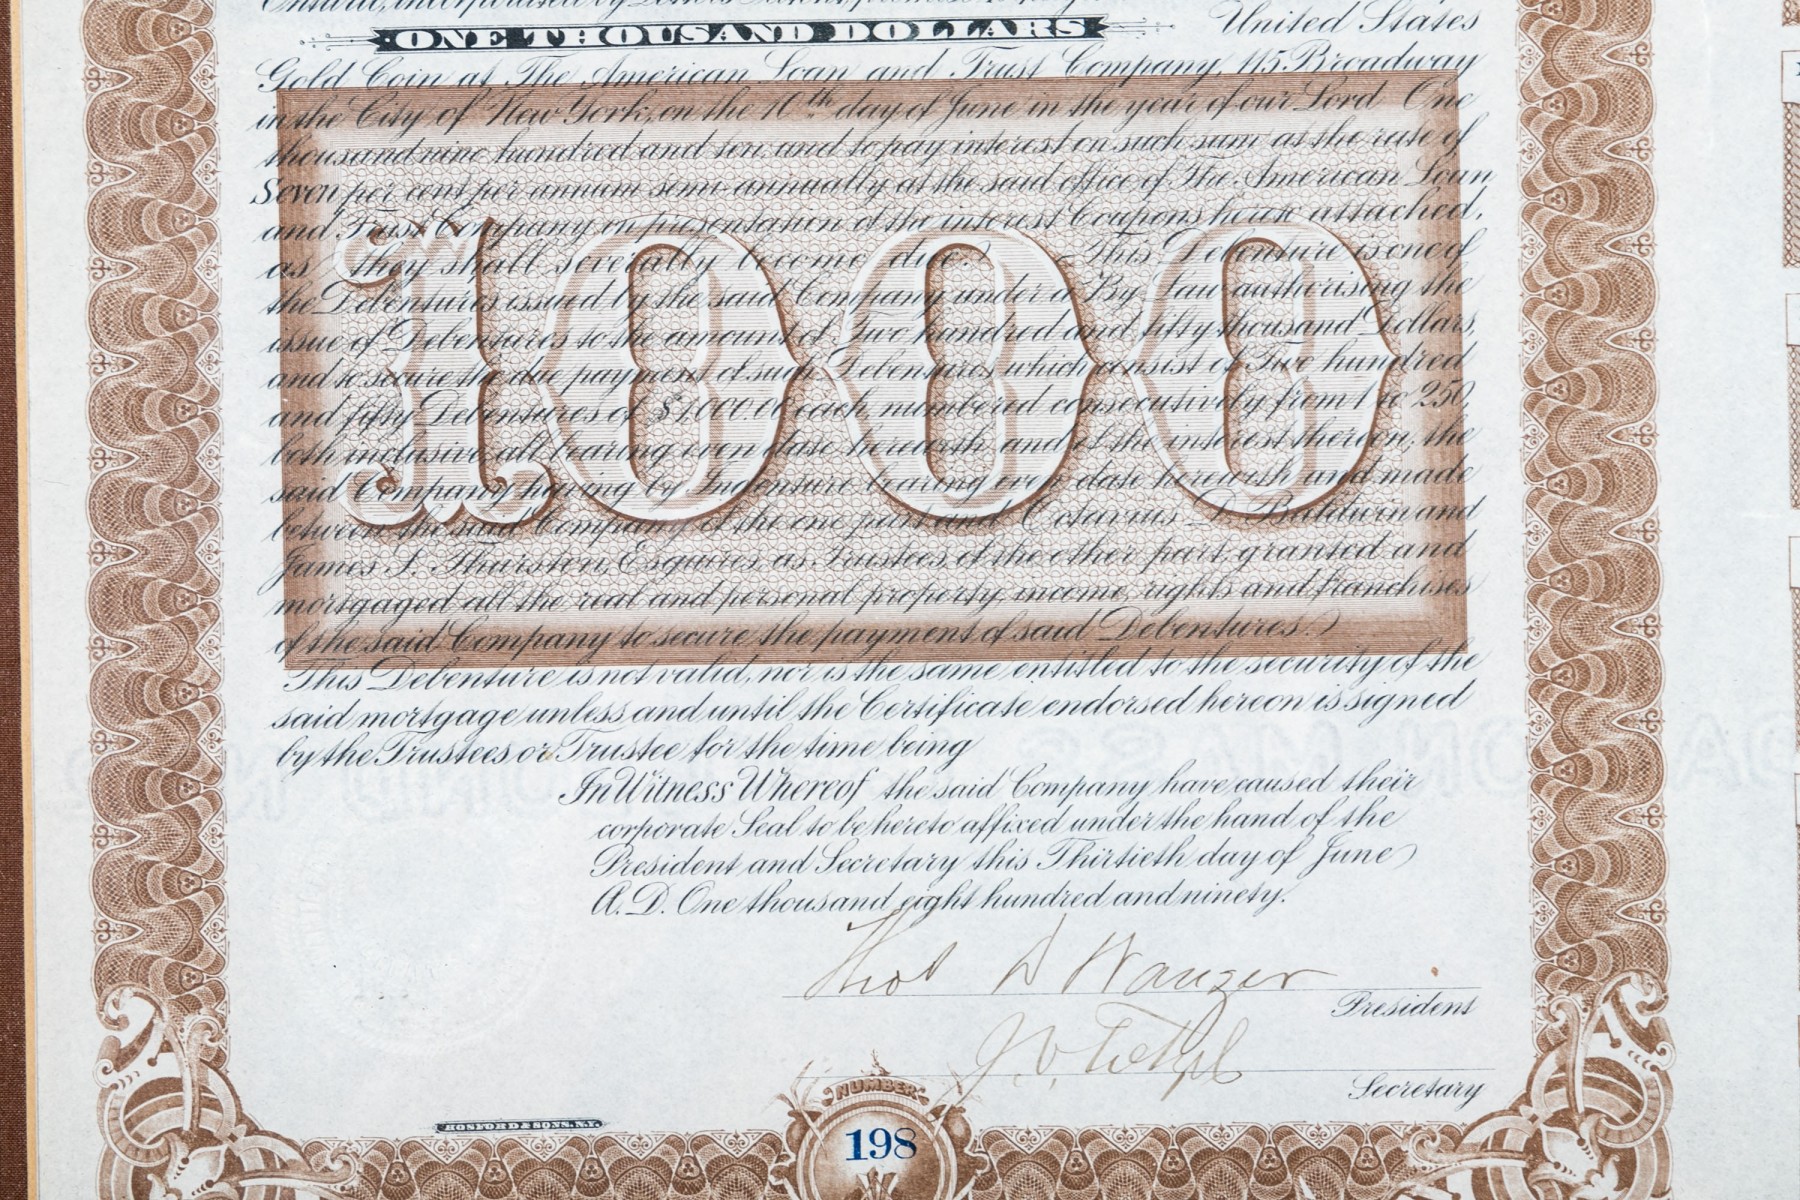 Ontario, incorporated by Letters Patent, promise to pay
ONE THOUSAND DOLLARS United States
Gold Coin at The American Loan and Trust Company, 115 Broadway
in the City of New York, on the 10th day of June in the year of our Lord One
thousand nine hundred and ten, and to pay interest on such sum at the rate of
Seven per cent per annum semi-annually at the said office of The American Loan
and Trust Company on presentation of the interest Coupons hereto attached,
as they shall severally become due. This Debenture is one of
the Debentures issued by the said Company under a By-Law authorising the
issue of Debentures to the amount of Two hundred and fifty thousand Dollars,
and to secure the due payment of such Debentures which consist of Two hundred
and fifty Debentures of $1,000.00 each, numbered consecutively from 1 to 250,
both inclusive, all bearing even date herewith and of the interest thereon, the
said Company having by Indenture bearing even date herewith and made
between the said Company of the one part and Octavius D. Baldwin and
James F. Thurston, Esquires, as Trustees, of the other part, granted and
mortgaged all the real and personal property, income, rights and franchises
of the said Company to secure the payment of said Debentures.
1000
This Debenture is not valid, nor is the same entitled to the security of the
said mortgage unless and until the Certificate endorsed hereon is signed
by the Trustees or Trustee for the time being
In Witness Whereof the said Company have caused their
corporate Seal to be hereto affixed under the hand of the
President and Secretary this Thirtieth day of June
A.D. One thousand eight hundred and ninety.
Thos D Wanzer
President
Secretary
HOSFORD & SONS. N.Y.
NUMBER
198